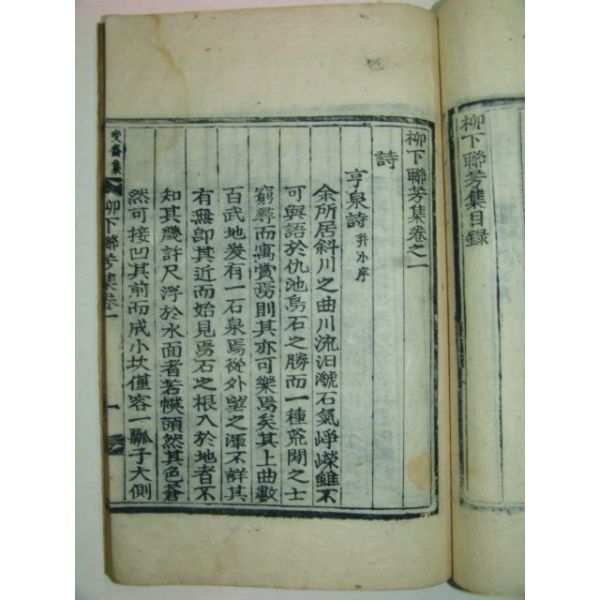 柳下聯芳集目錄
柳下聯芳集卷之一
詩
亨泉詩 并小序
余所居斜川之曲川流汩㶁石氣崢嶸雖不
可與語於仇池烏石之勝而一種荒閒之士
窮尋而寓賞焉則其亦可樂焉矣其上曲數
百武地爰有一石泉焉從外望之渾不詳其
有無卽其近而始見焉石之根入於地者不
知其幾許尺浮於水面者若幞頭然其色蒼
然可接凹其前而成小坎僅容一瓢子大側
齋集 柳下聯芳集卷一 一